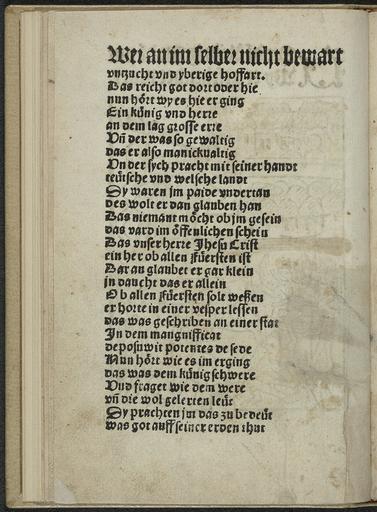 Wer an im selber nicht bewart
vntzucht vnd yberige hoffart.
Das reicht got dort oder hie
nun hört wy es hie er ging
Ein künig vnd herre
an dem lag grosse erre
Vñ der was so gewaltig
das er also manickualtig
Vn der sych pracht mit seiner handt
teütsche vnd welsche landt
Dy waren jm paide vndertan
des wolt er dan glauben han
Das niemant möcht ob jm gesein
das vard im öffenlichen schein
Das vnser herre Jhesu Crist
ein her ob allen Füersten ist
Dar an glaubet er gar klein
jn daucht das er allein
Ob allen Füersten solt weßen
er horte in einer vesper lessen
das was geschriben an einer stat
In dem mangnifficat
deposuwit potentes de sede
Nun hört wie es im erging
das was dem künig schwere
Vnd fraget wie dem were
vñ die wol gelerten leüt
Dy prachten jm das zu bedeüt
was got auff seiner erden thut